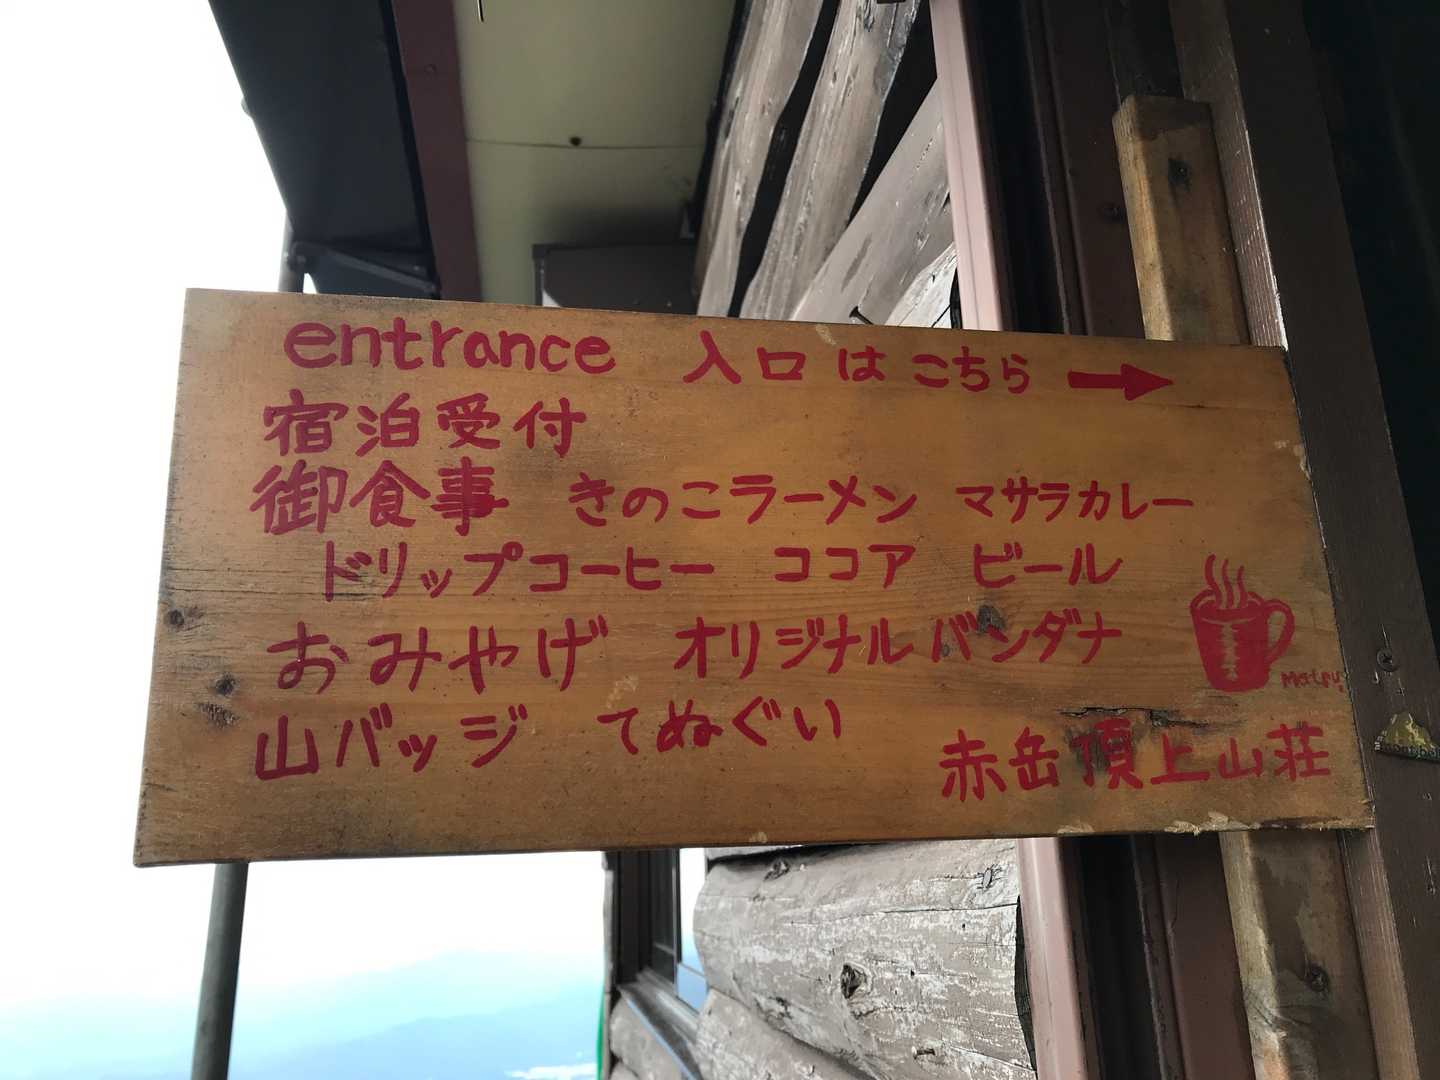 entrance 入口はこちら →
宿泊受付
御食事 きのこラーメン マサラカレー
ドリップコーヒー ココア ビール
おみやげ オリジナルバンダナ
山バッジ てぬぐい
赤岳頂上山荘